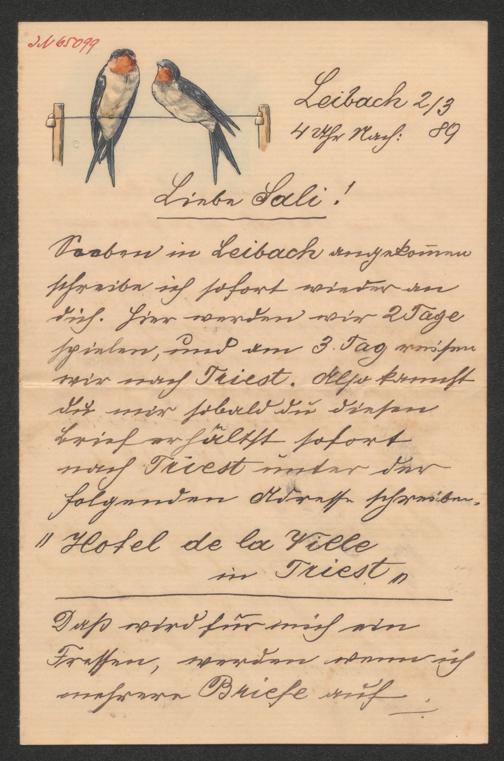 JN 65099
Leibach 2/3
4 Uhr Nach: 89
Liebe Sali!
Soeben in Leibach angekommen
schreibe ich sofort wieder an
dich. Hier werden wir 2 Tage
spielen, und am 3. Tag reisen
wir nach Triest. Also kannst
du mir sobald du diesen
Brief erhältst sofort
nach Triest unter der
folgenden Adresse schreiben.
„ Hotel de la Ville
in Triest „
Daß wird für mich ein
Fressen, werden wenn ich
mehrere Briefe auf